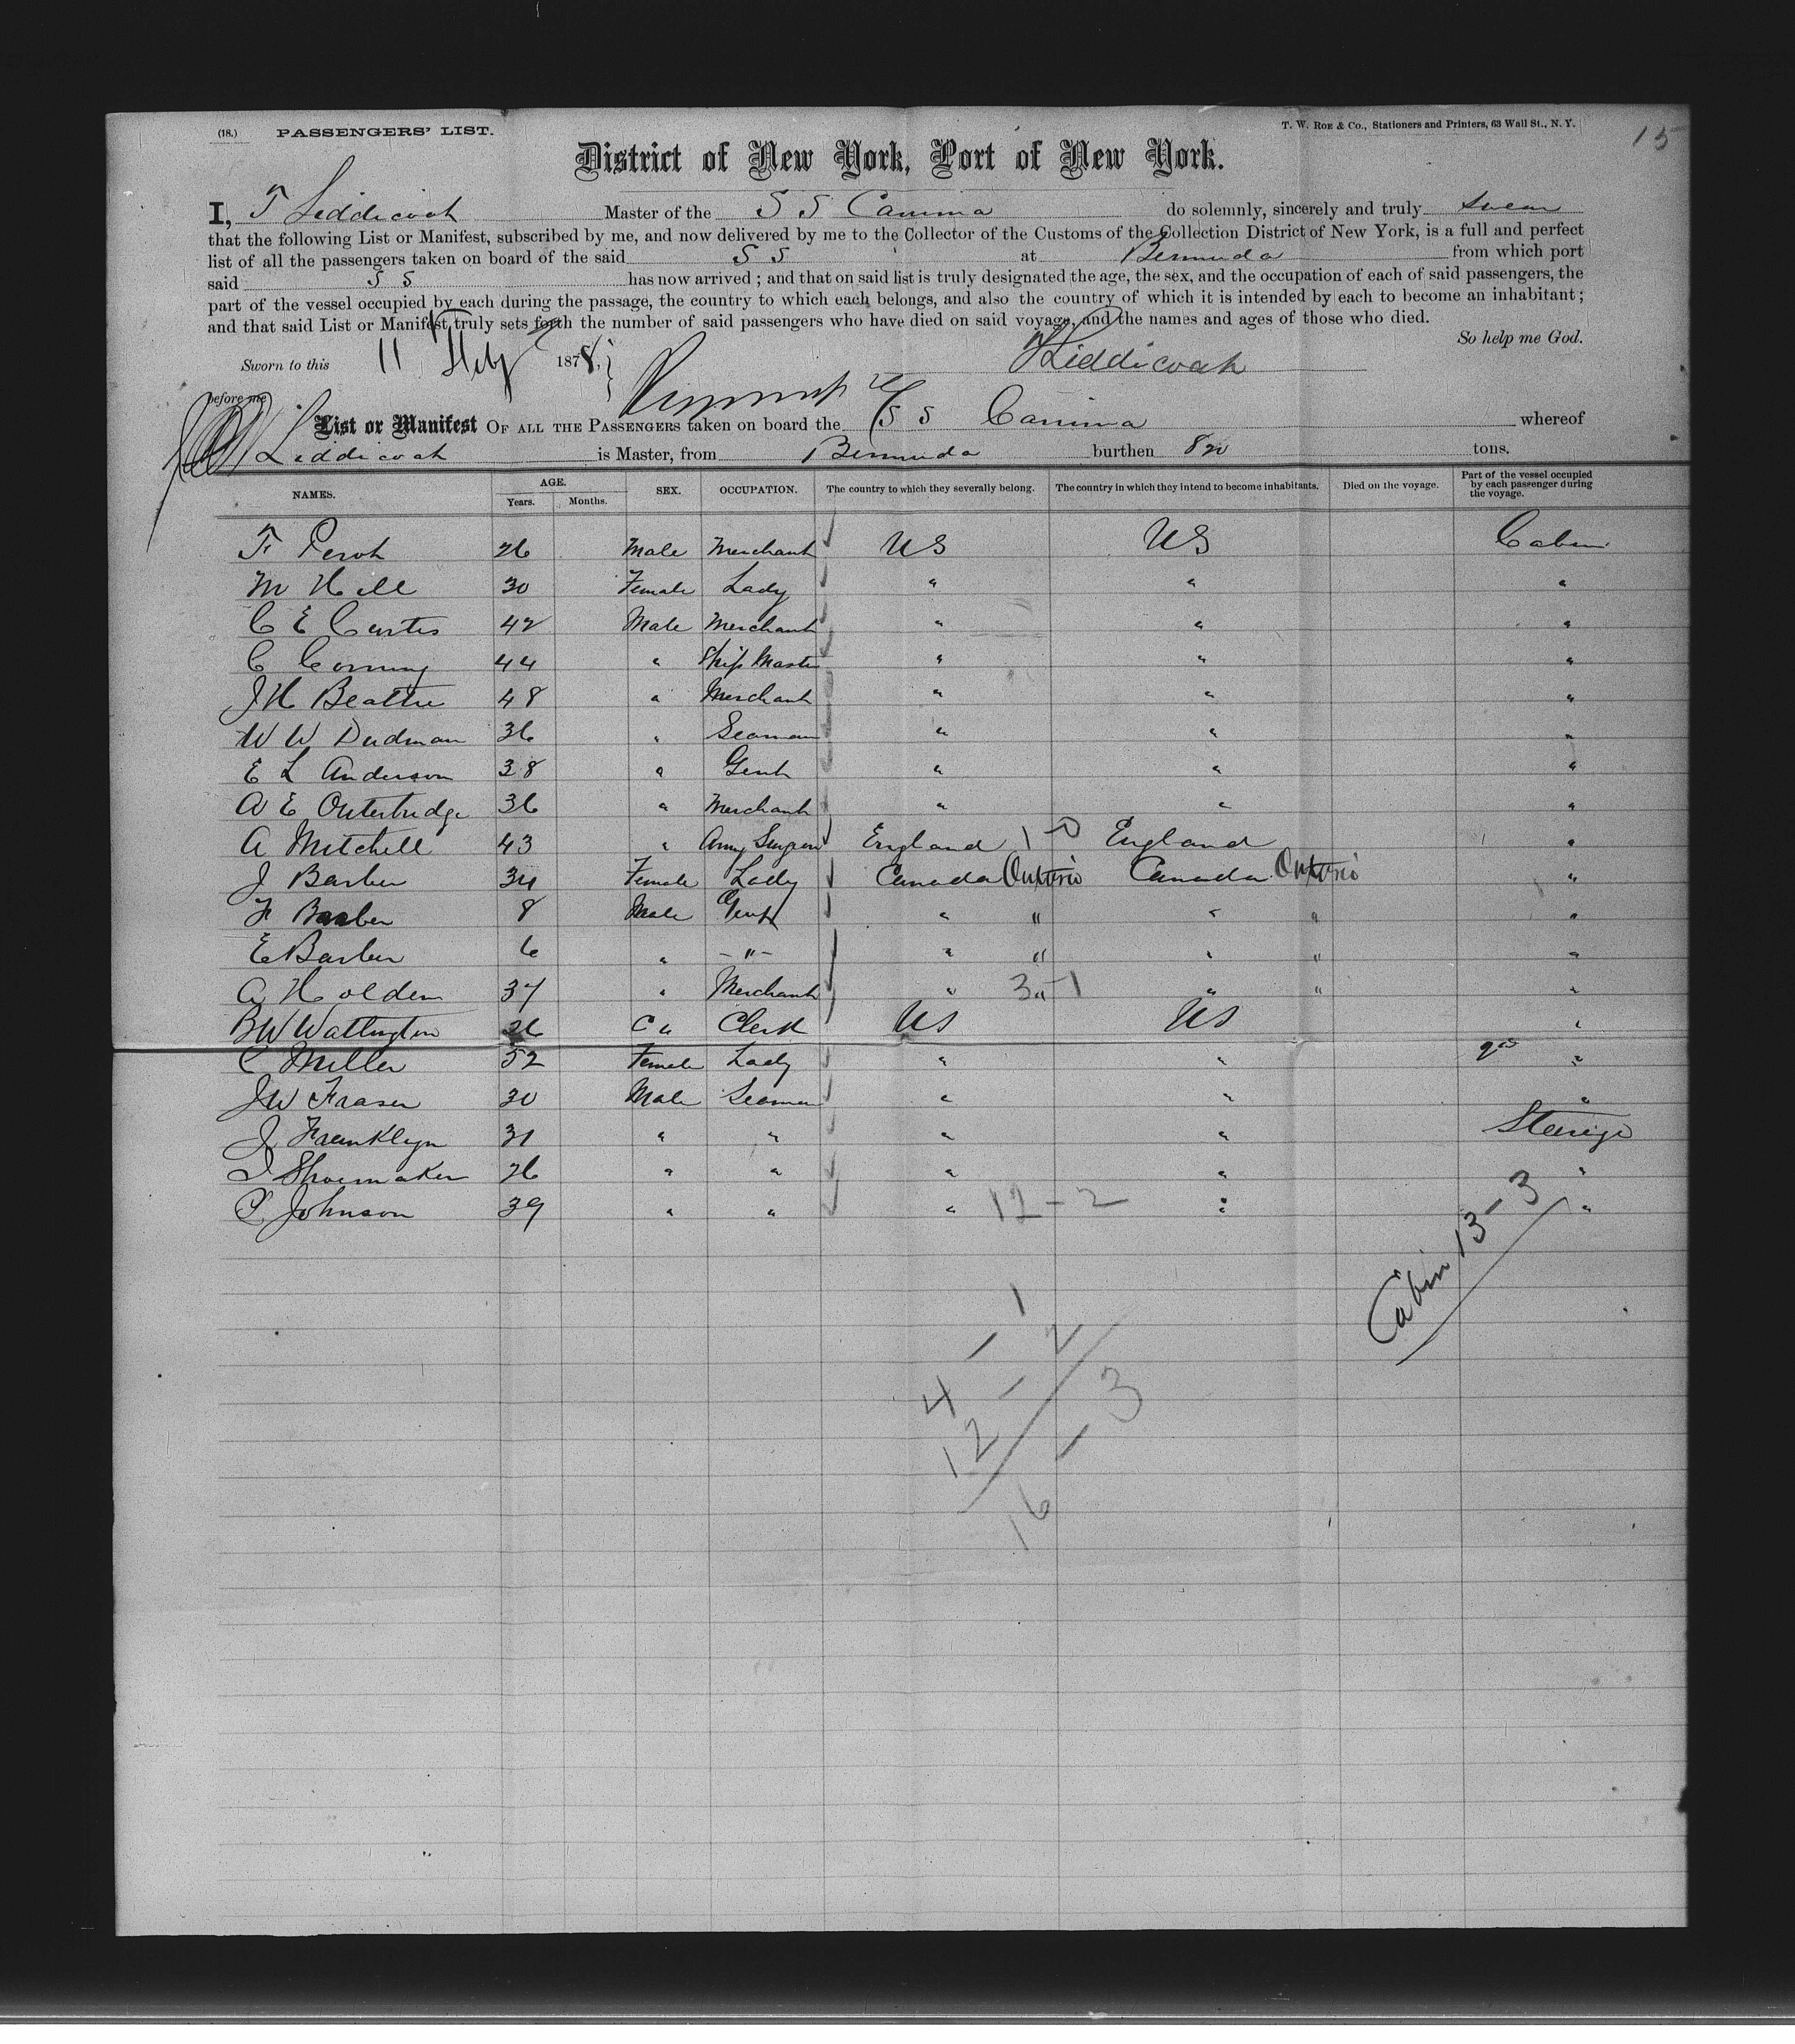 (18.) PASSENGERS' LIST. T. W. ROE & CO., Stationers and Printers, 63 Wall St., N. Y. 15
District of New York, Port of New York.
I, T Liddicoat Master of the S S Canima do solemnly, sincerely and truly swear
that the following List or Manifest, subscribed by me, and now delivered by me to the Collector of the Customs of the Collection District of New York, is a full and perfect
list of all the passengers taken on board of the said S S at Bermuda from which port
said S S has now arrived; and that on said list is truly designated the age, the sex, and the occupation of each of said passengers, the
part of the vessel occupied by each during the passage, the country to which each belongs, and also the country of which it is intended by each to become an inhabitant;
and that said List or Manifest truly sets forth the number of said passengers who have died on said voyage, and the names and ages of those who died.
So help me God.
Sworn to this 11 Feby 1878, Liddicoat
before me
List or Manifest OF ALL THE PASSENGERS taken on board the S S Canima whereof
Liddicoat is Master, from Bermuda burthen 820 tons.
NAMES. AGE. Years. Months. SEX. OCCUPATION. The country to which they severally belong. The country in which they intend to become inhabitants. Died on the voyage. Part of the vessel occupied by each passenger during the voyage.
F Perot 26 Male Merchant US US Cabin
M Hill 30 Female Lady " " "
C E Curtis 42 Male Merchant " " "
C Corning 44 " Ship Master " " "
J H Beattie 48 " Merchant " " "
W W Dudman 36 " Seaman " " "
E L Anderson 38 " Gent " " "
A E Outerbridge 36 " Merchant " " "
A Mitchell 43 " Army Surgeon England 1-0 England "
J Barber 34 Female Lady Canada Ontario Canada Ontario "
F Barber 8 Male Gent " " " " "
E Barber 6 " -"- " " " " "
A Holden 37 " Merchant " 3 " -1 " " "
B W Wattington 26 " Clerk US US "
C Miller 52 Female Lady " " "
J W Fraser 30 Male Seaman " " "
J Franklyn 31 " " " " Steerige
J Shoemaker 26 " " " " "
P Johnson 39 " " " 12-2 " "
Cabin 13-3
4-1
12-2
16-3